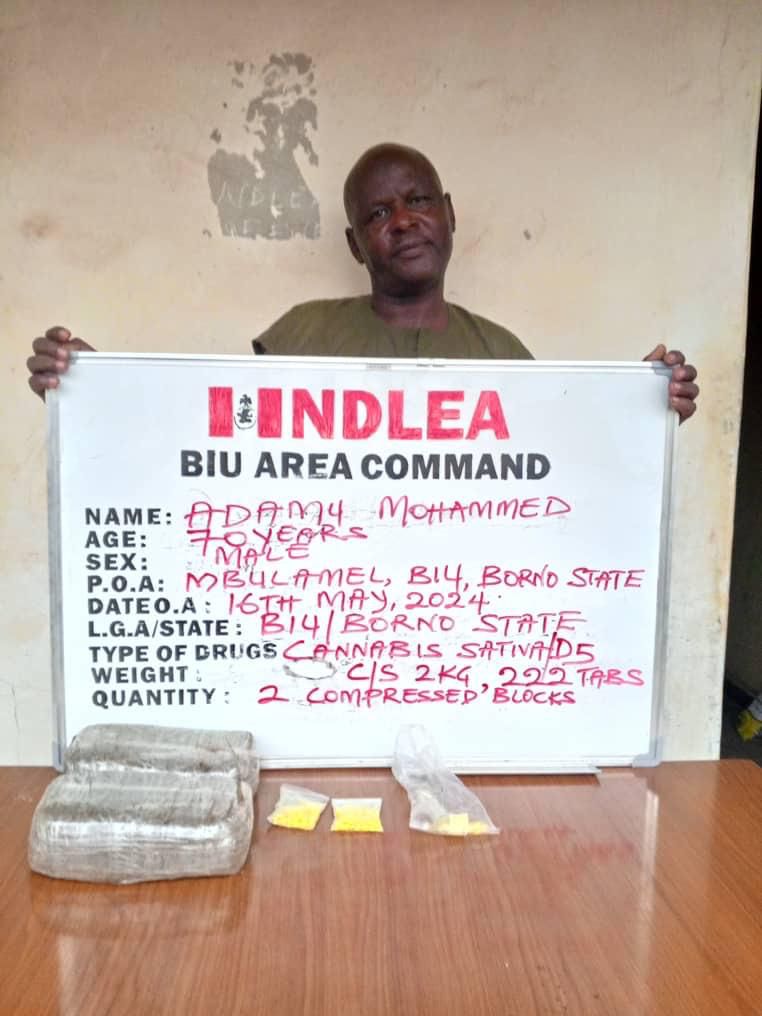 NDLEA
NDLEA
BIU AREA COMMAND
NAME: ADAMU MOHAMMED
AGE: 70 YEARS
SEX: MALE
P.O.A: MBULAMEL, BIU, BORNO STATE
DATEO.A: 16TH MAY, 2024.
L.G.A/STATE: BIU/BORNO STATE
TYPE OF DRUGS CANNABIS SATIVA/D5
WEIGHT: C/S 2KG, 222 TABS
QUANTITY: 2 COMPRESSED BLOCKS